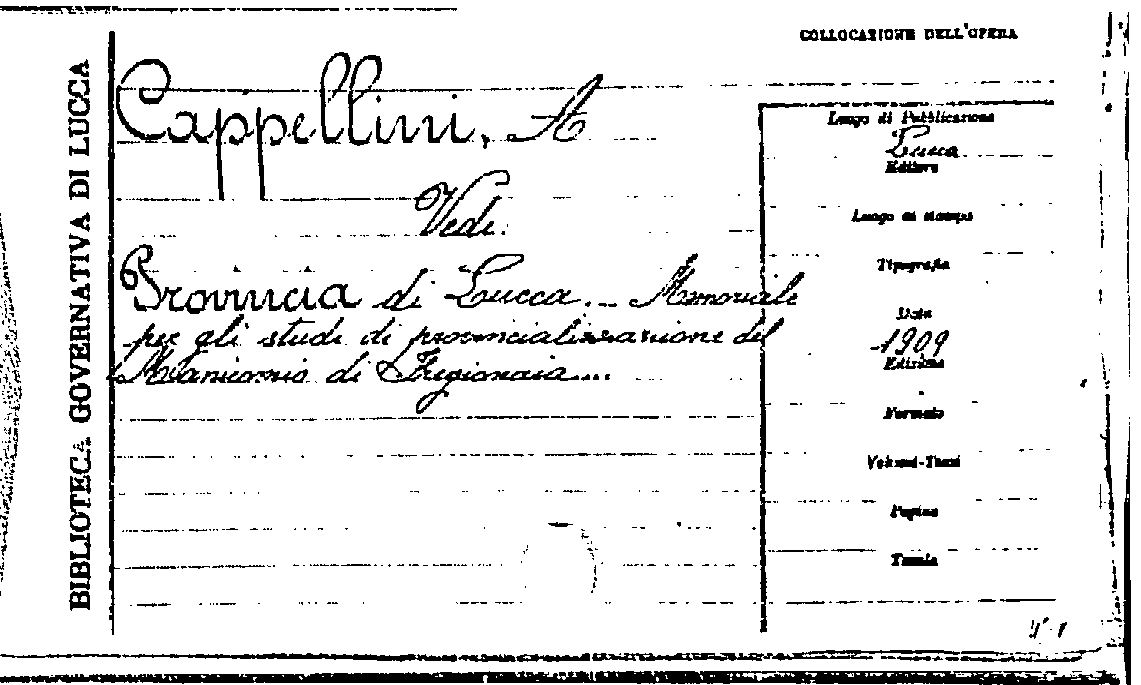 BIBLIOTECA GOVERNATIVA DI LUCCA
COLLOCAZIONE DELL'OPERA
Cappellini, A
Vedi.
Provincia di Lucca. - Memoriale
per gli studi di provincializzazione del
Manicomio di Fregionaia....
Luogo di Pubblicazione
Lucca
Editore
Luogo di stampa
Tipografia
Data
1909
Edizione
Formato
Volumi-Tomi
Pagine
Tavole